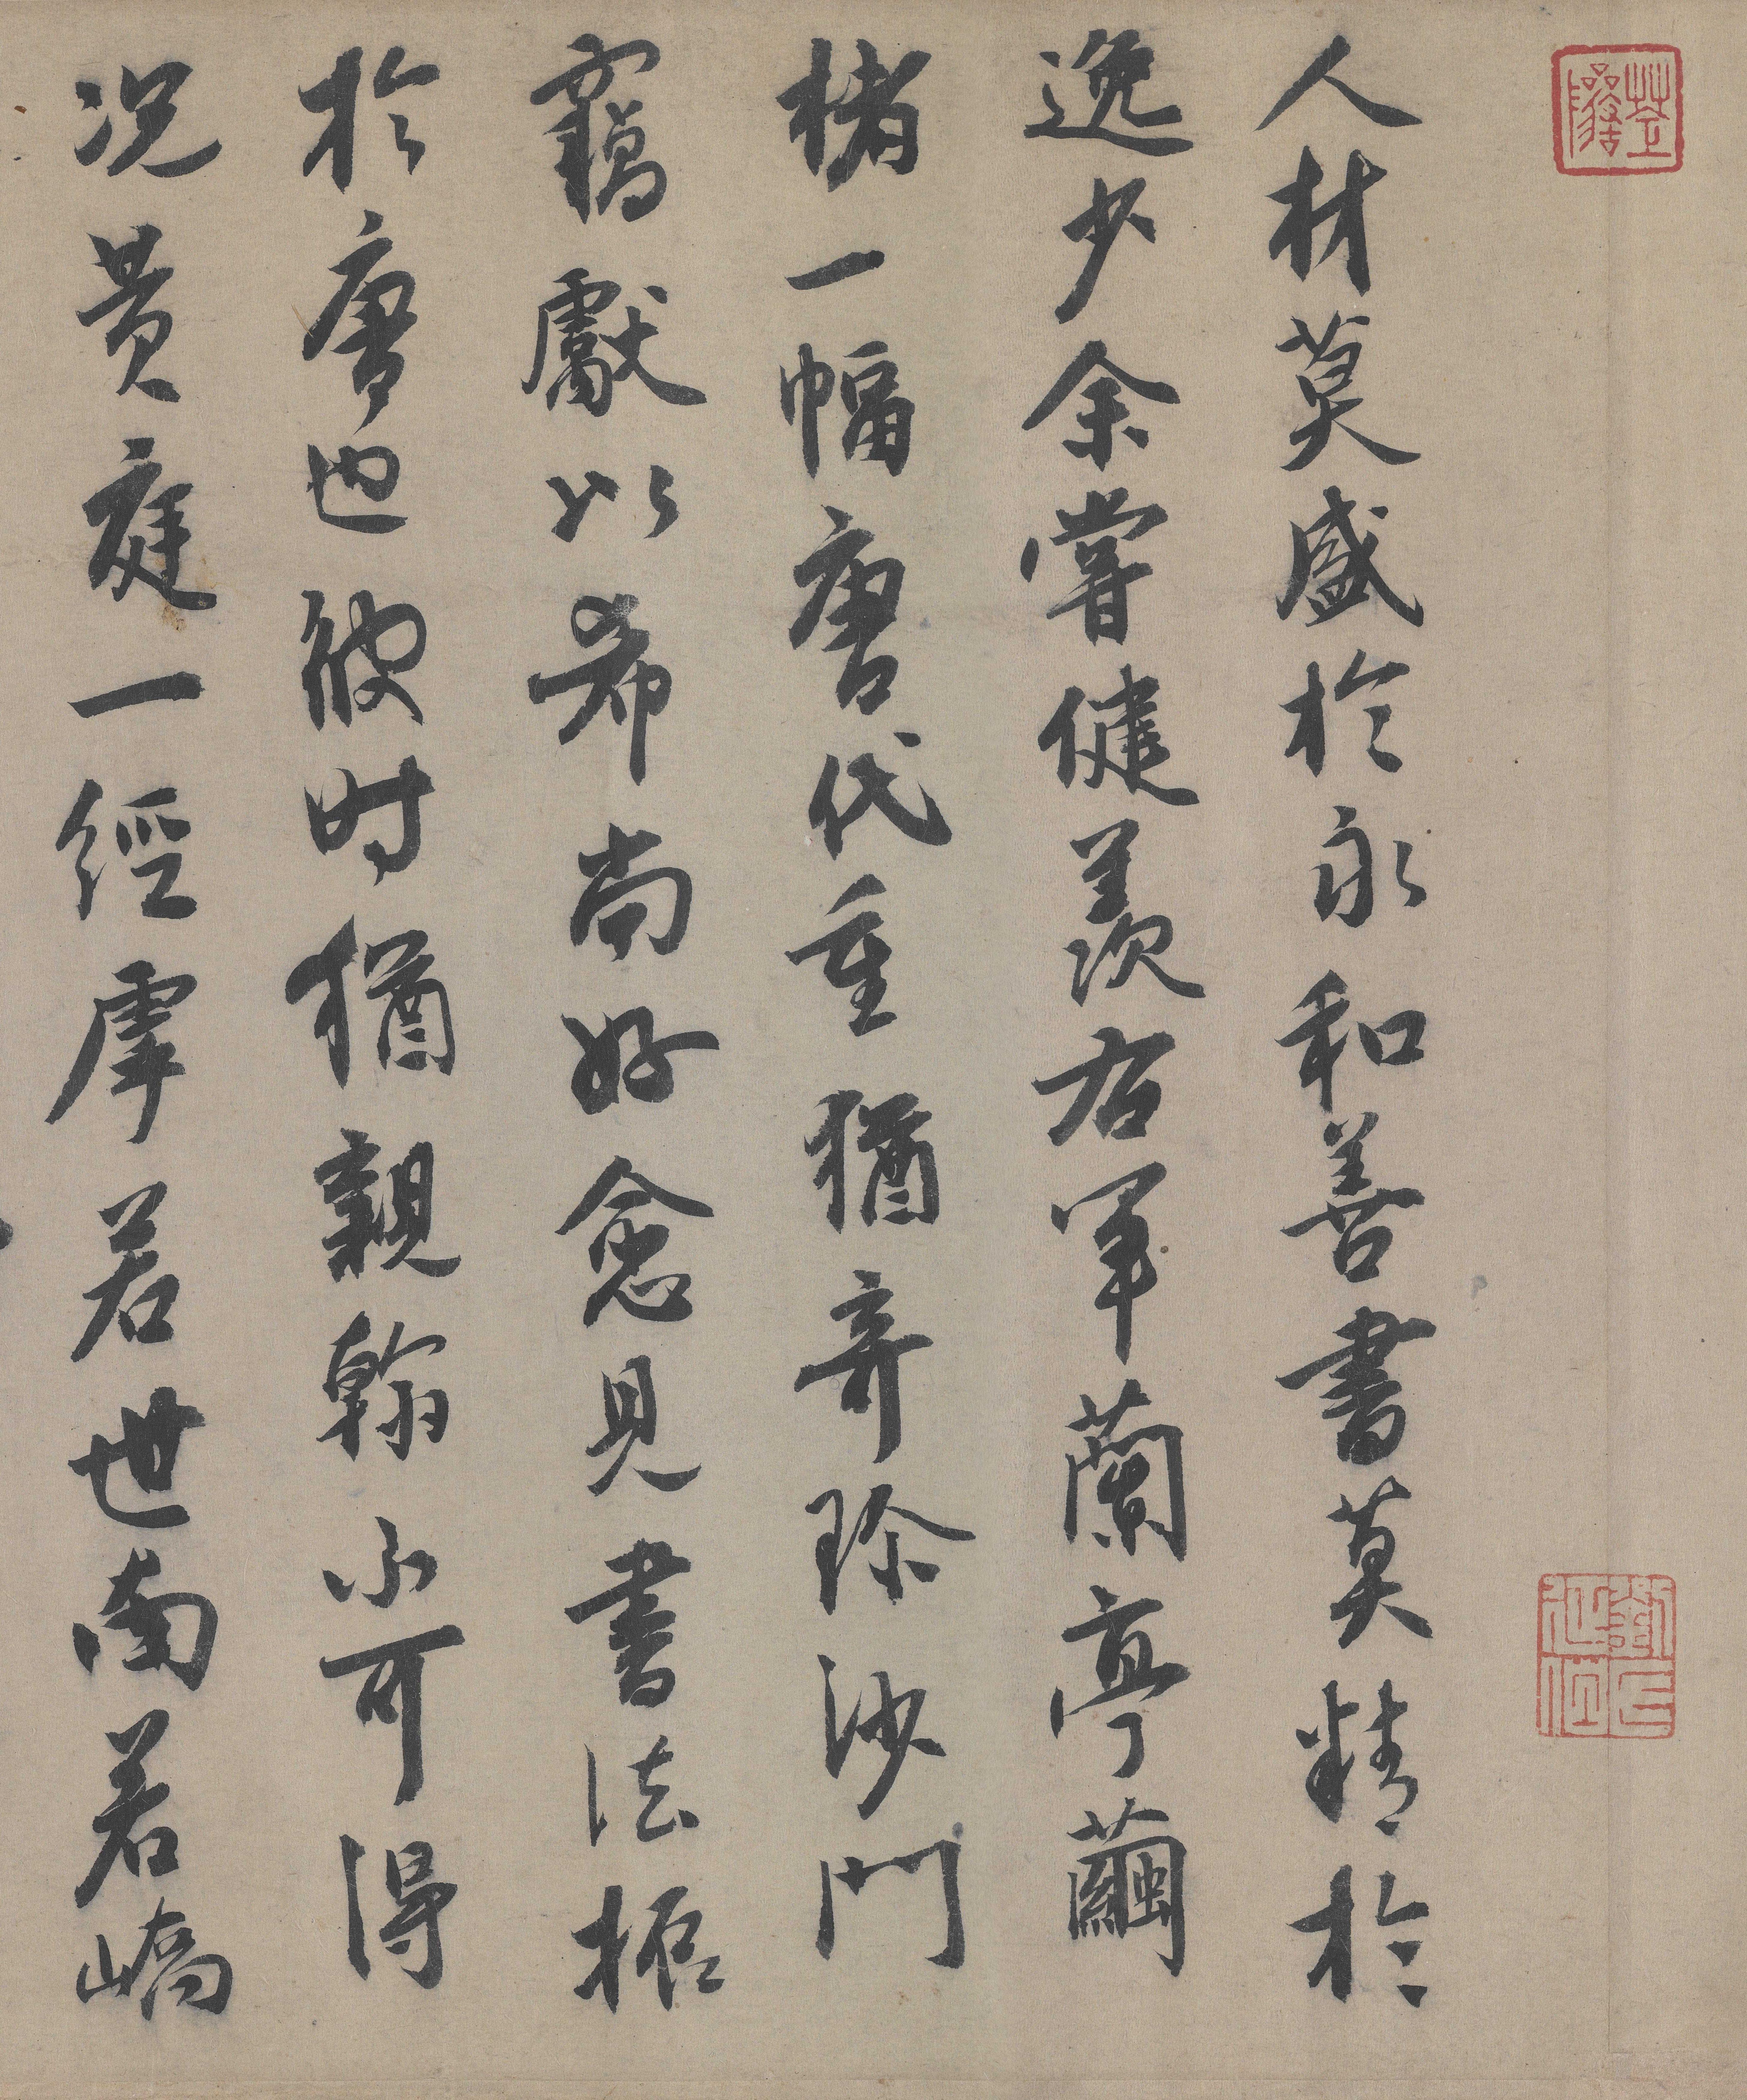 人材莫盛於永和善書莫精於
逸少余嘗健羨右軍蘭亭繭
楮一幅唐代重猶奇珍沙門
竊獻以希尚好愈見書法振
於唐也彼时猶親翰不可得
况黄庭一經虖若世南若嶠